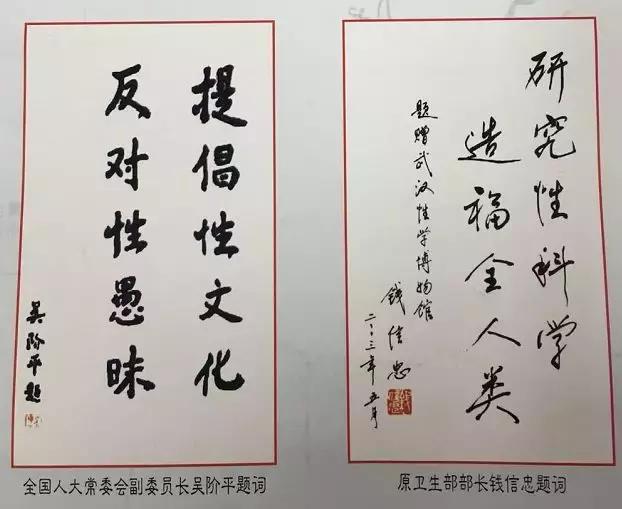 提倡性文化
反对性愚昧
吴阶平题
全国人大常委会副委员长吴阶平题词
研究性科学
造福全人类
题赠武汉性学博物馆
钱信忠
二〇〇三年五月
原卫生部部长钱信忠题词